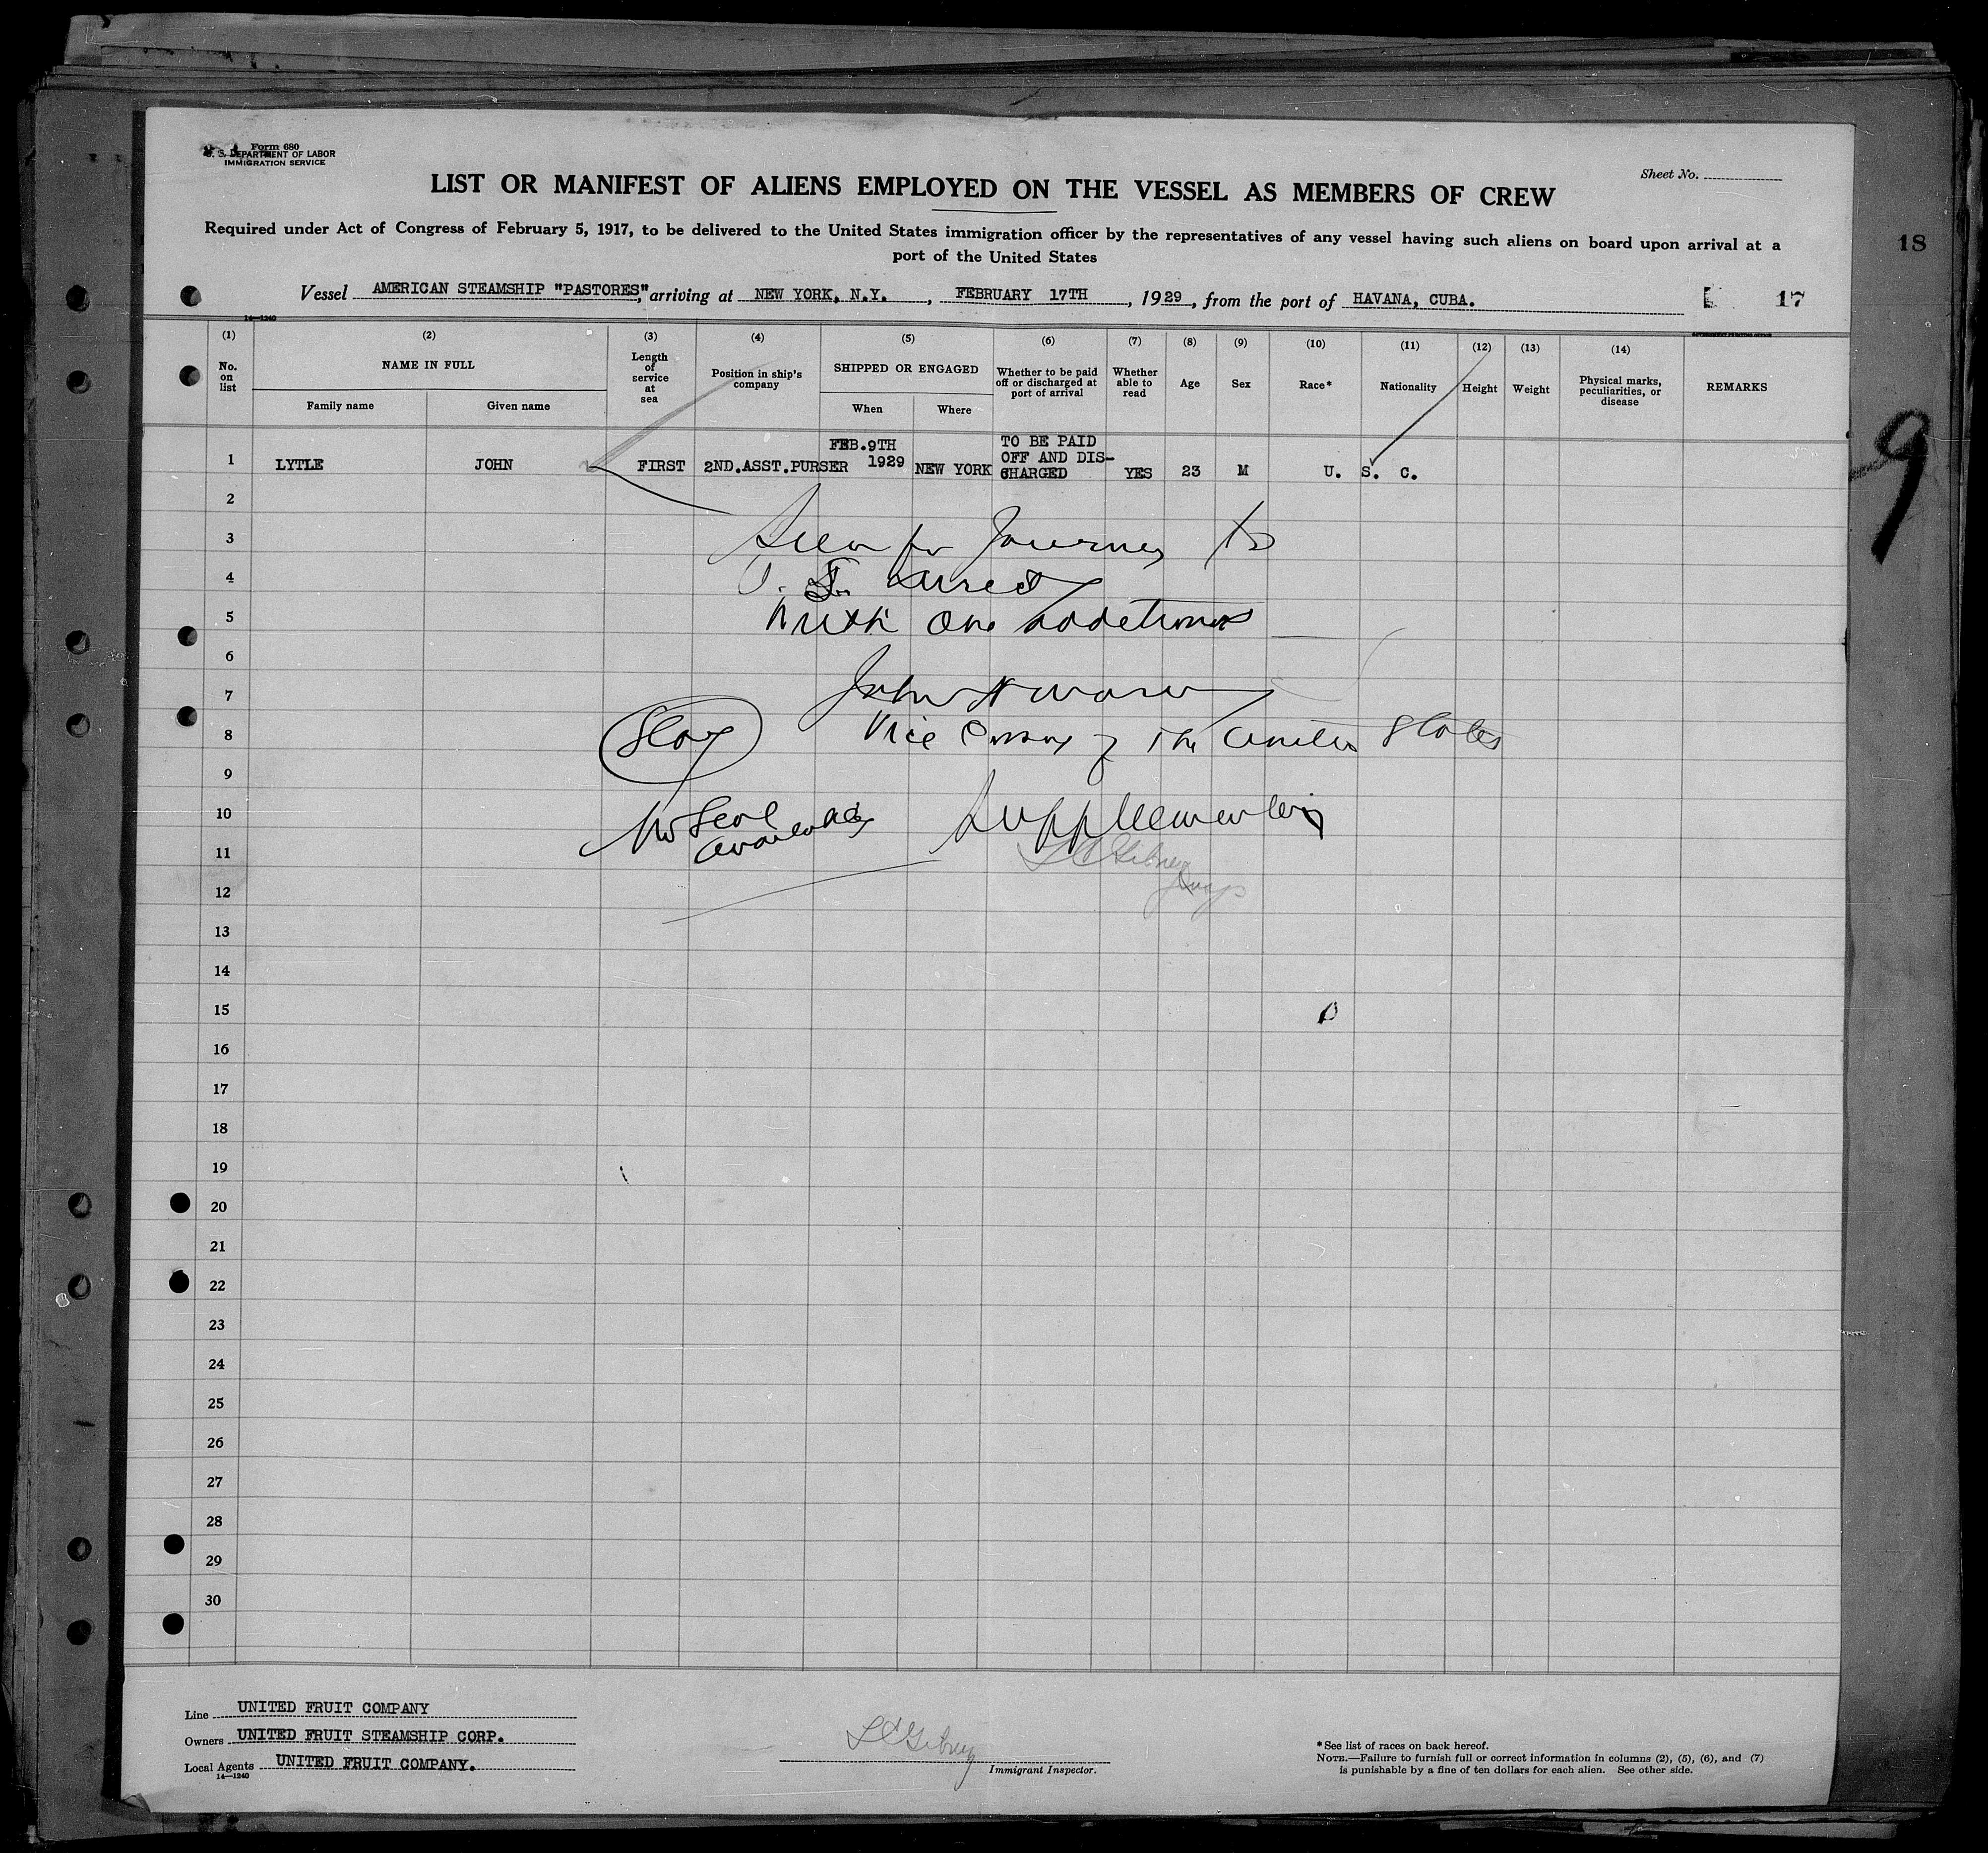 Form 680
U. S. DEPARTMENT OF LABOR
IMMIGRATION SERVICE
Sheet No.
LIST OR MANIFEST OF ALIENS EMPLOYED ON THE VESSEL AS MEMBERS OF CREW
Required under Act of Congress of February 5, 1917, to be delivered to the United States immigration officer by the representatives of any vessel having such aliens on board upon arrival at a
port of the United States
18
Vessel AMERICAN STEAMSHIP "PASTORES", arriving at NEW YORK, N.Y., FEBRUARY 17TH, 1929, from the port of HAVANA, CUBA.
17
14—1240
(1) (2) (3) (4) (5) (6) (7) (8) (9) (10) (11) (12) (13) (14)
No. on list
NAME IN FULL
Family name Given name
Length of service at sea
Position in ship's company
SHIPPED OR ENGAGED
When Where
Whether to be paid off or discharged at port of arrival
Whether able to read
Age
Sex
Race*
Nationality
Height
Weight
Physical marks, peculiarities, or disease
REMARKS
9
1 LYTLE JOHN FIRST 2ND.ASST.PURSER FEB.9TH 1929 NEW YORK TO BE PAID OFF AND DISCHARGED YES 23 M U. S. C.
2
3 Seen for Journey to
4 U. S. direct
5 with one additional
6
7 John H
8 Seal Vice Consul of the United States
9
10 No Seal available Supplementary
11 L C Gibney
12 Insp
13
14
15
16
17
18
19
20
21
22
23
24
25
26
27
28
29
30
Line UNITED FRUIT COMPANY
Owners UNITED FRUIT STEAMSHIP CORP.
Local Agents UNITED FRUIT COMPANY.
14—1240
L C Gibney
Immigrant Inspector.
*See list of races on back hereof.
NOTE.—Failure to furnish full or correct information in columns (2), (5), (6), and (7)
is punishable by a fine of ten dollars for each alien. See other side.